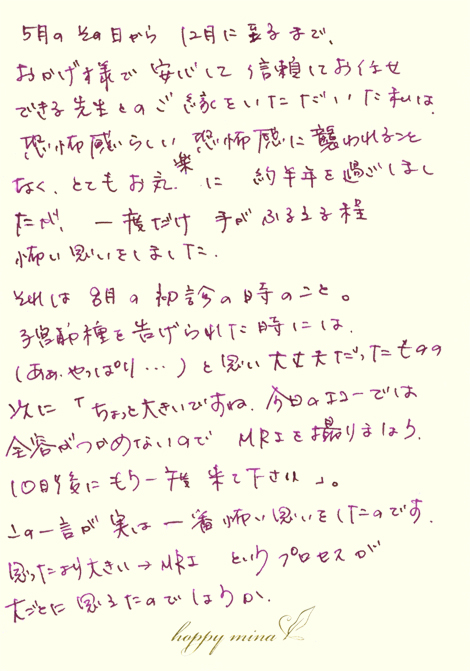 5月のその日から 12月に至るまで、
おかげ様で 安心して 信頼してお任せ
できる先生とのご縁をいただいた私は、
恐怖感らしい恐怖感に襲われること
なく、とてもお気楽に 約半年を過ごしまし
たが、一度だけ 手がふるえる程
怖い思いをしました。
それは 8月の初診の時のこと。
子宮筋腫を告げられた時には、
(あぁ、やっぱり…)と思い大丈夫だったものの
次に「ちょっと大きいですね、今日のエコーでは
全容がつかめないので MRIを撮りましょう。
10日後にもう一度 来て下さい」。
この一言が 実は 一番怖い思いをしたのです。
思ったより大きい→MRI というプロセスが
大ごとに思えたのでしょうか。
happy mina